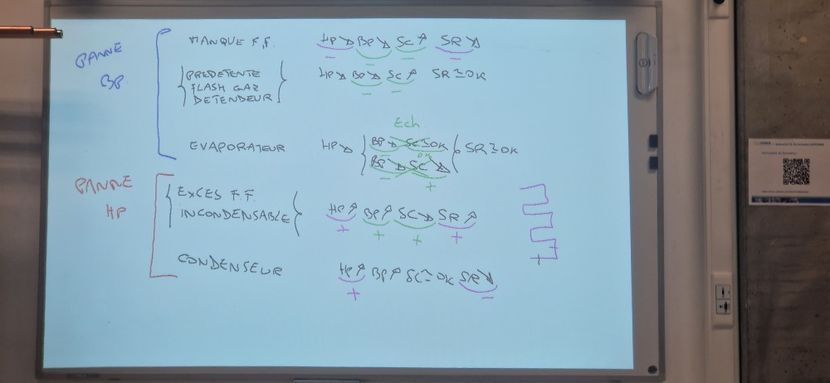 PANNE
BP
MANQUE F.F. HP↘ BP↘ SC↗ SR↘
- - - -
PREDETENTE
FLASH GAZ
DETENDEUR
HP↘ BP↘ SC↗ SR≃OK
- -
Ech
EVAPORATEUR HP↘ BP↘ SC≃OK SR≃OK
OK
BP↘ SC↘
- +
PANNE
HP
EXCES F.F.
INCONDENSABLE
HP↗ BP↗ SC↘ SR↗
+ + + +
CONDENSEUR HP↗ BP↗ SC≃OK SR↘
+ -